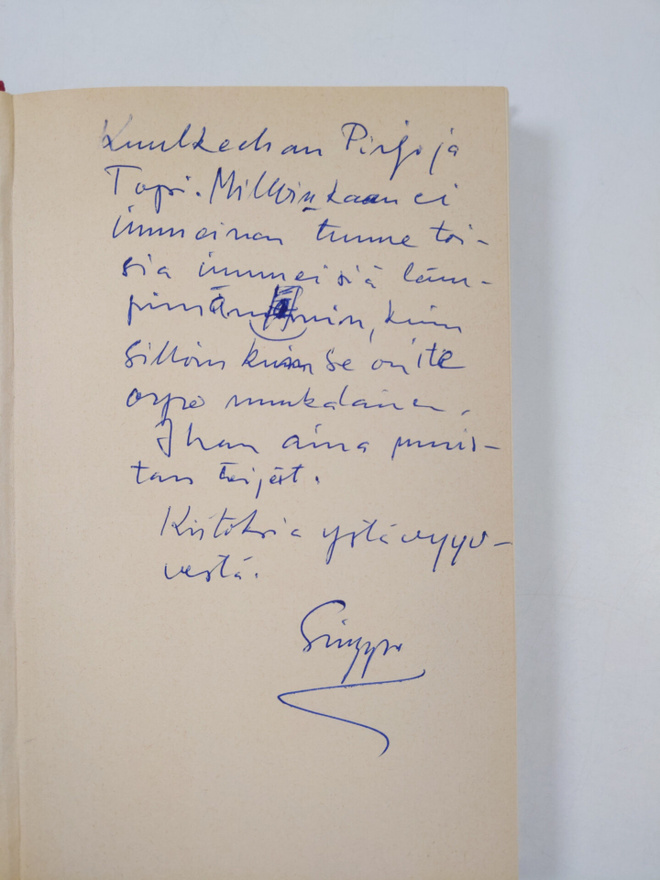 Kuulkeehan Pirjo ja
Topi. Milloinkaan ei
immeinen tunne toi-
sia immeisiä läm-
pimämmin, kuin
sillon kuin se on ite
orpo muukalainen.
Ihan aina muis-
tan teijät.
Kiitoksia ystävyyv-
vestä.